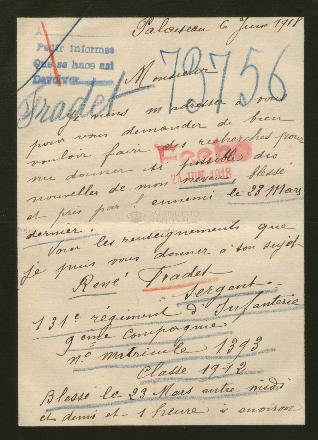 Palaiseau 6 Juin 1918
Pedir informes
Que se hace asi
78756
Monsieur
Tradet
Je viens m'adresser à vous
pour vous demander de bien
vouloir faire des recherches pour
me donner si possible des
nouvelles de mon neveu blessé
et pris par l'ennemi le 23 Mars
dernier.
Voici les renseignements que
je puis vous donner à son sujet
René Tradet
Sergent
131e régiment d'Infanterie
9ème Compagnie
no matricule 1393
Classe 1912
Blessé le 23 Mars entre midi
et demi et 1 heure à environ